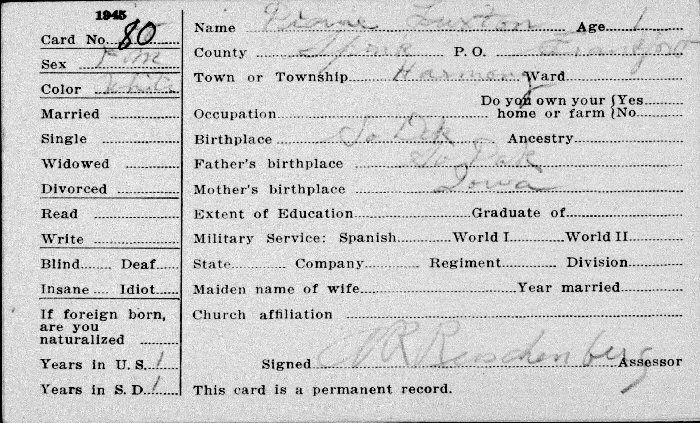 1945
Card No. 80
Sex Fem
Color White
Married
Single
Widowed
Divorced
Read
Write
Blind Deaf
Insane Idiot
If foreign born,
are you
naturalized
Years in U. S. 1
Years in S. D. 1
Name Luxton Age 1
County Spink P. O. Frankfort
Town or Township Harmony Ward
Do you own your { Yes
Occupation home or farm { No
Birthplace So Dak Ancestry
Father's birthplace So Dak
Mother's birthplace Iowa
Extent of Education Graduate of
Military Service: Spanish World I World II
State Company Regiment Division
Maiden name of wife Year married
Church affiliation
Signed Reschenberg Assessor
This card is a permanent record.